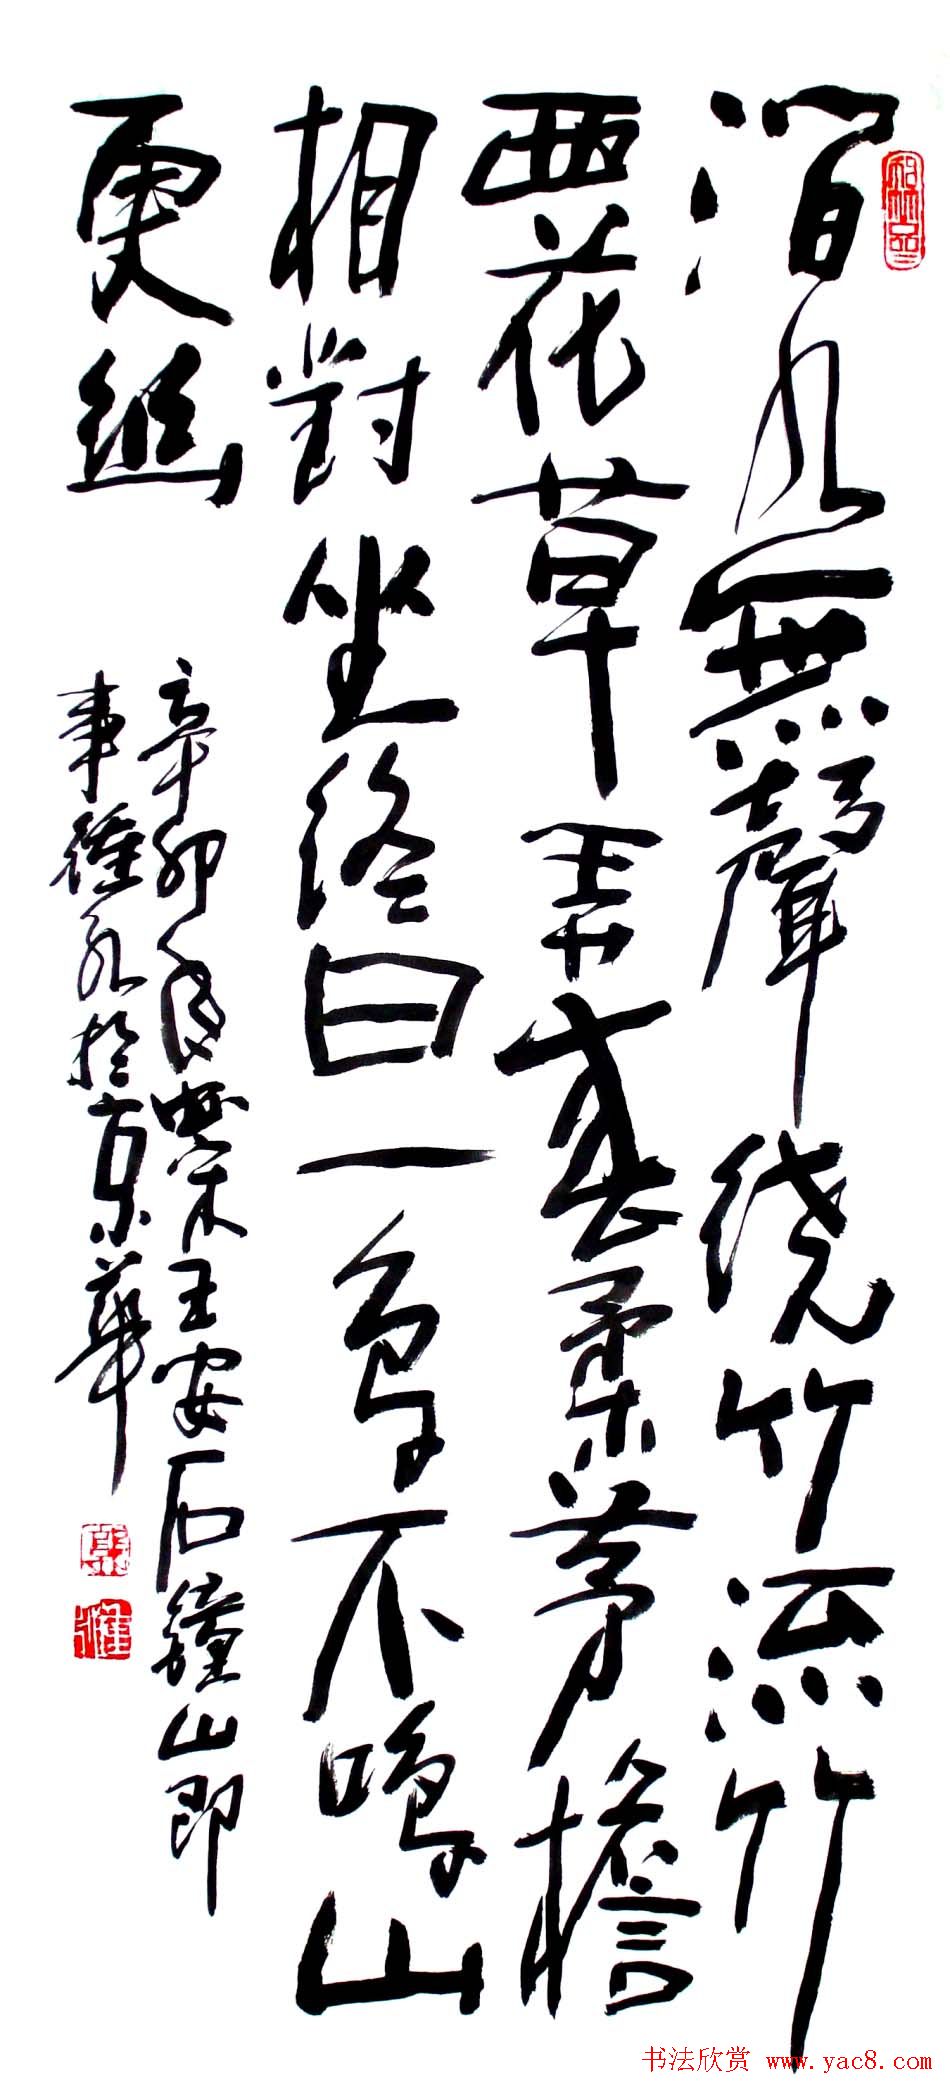 澗水無聲绕竹流竹
西花草弄春柔茅檐
相對坐終日一鳥不鳴山
更幽
辛卯年宋王安石鐘山即
事於京華
书法欣赏 www.yac8.com